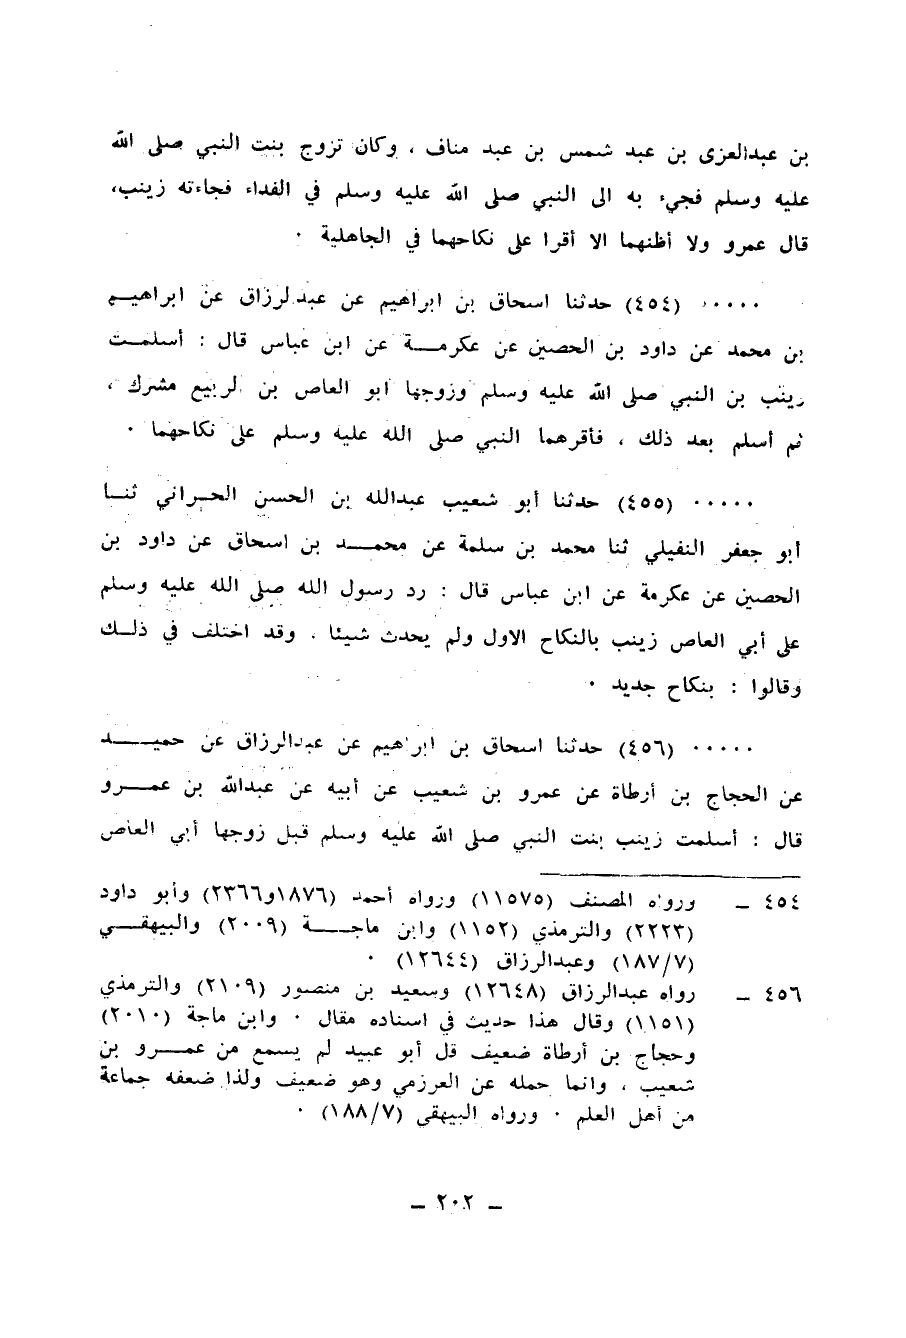 بن عبدالعزى بن عبد شمس بن عبد مناف ، وكان تزوج بنت النبي صلى الله
عليه وسلم فجيء به الى النبي صلى الله عليه وسلم في الفداء فجاءته زينب،
قال عمرو ولا أظنهما الا أقرا على نكاحهما في الجاهلية ٠
٠٠٠٠٠ (٤٥٤) حدثنا اسحاق بن ابراهيم عن عبدالرزاق عن ابراهيم
بن محمد عن داود بن الحصين عن عكرمة عن ابن عباس قال : أسلمت
زينب بن النبي صلى الله عليه وسلم وزوجها ابو العاص بن الربيع مشرك ،
ثم أسلم بعد ذلك ، فأقرهما النبي صلى الله عليه وسلم على نكاحهما ٠
٠٠٠٠٠ (٤٥٥) حدثنا أبو شعيب عبدالله بن الحسن الحراني ثنا
أبو جعفر النفيلي ثنا محمد بن سلمة عن محمد بن اسحاق عن داود بن
الحصين عن عكرمة عن ابن عباس قال : رد رسول الله صلى الله عليه وسلم
على أبي العاص زينب بالنكاح الاول ولم يحدث شيئا . وقد اختلف في ذلك
وقالوا : بنكاح جديد ٠
٠٠٠٠٠ (٤٥٦) حدثنا اسحاق بن ابراهيم عن عبدالرزاق عن حميد
عن الحجاج بن أرطاة عن عمرو بن شعيب عن أبيه عن عبدالله بن عمرو
قال : أسلمت زينب بنت النبي صلى الله عليه وسلم قبل زوجها أبي العاص
٤٥٤ ــ ورواه المصنف (١١٥٧٥) ورواه أحمد (١٨٧٦و٢٣٦٦) وأبو داود
(٢٢٢٣) والترمذي (١١٥٢) وابن ماجة (٢٠٠٩) والبيهقي
(١٨٧/٧) وعبدالرزاق (١٢٦٤٤) ٠
٤٥٦ ــ رواه عبدالرزاق (١٢٦٤٨) وسعيد بن منصور (٢١٠٩) والترمذي
(١١٥١) وقال هذا حديث في اسناده مقال ٠ وابن ماجة (٢٠١٠)
وحجاج بن أرطاة ضعيف قل أبو عبيد لم يسمع من عمرو بن
شعيب ، وانما حمله عن العرزمي وهو ضعيف ولذا ضعفه جماعة
من أهل العلم ٠ ورواه البيهقي (١٨٨/٧) ٠
ــ ٢٠٢ ــ